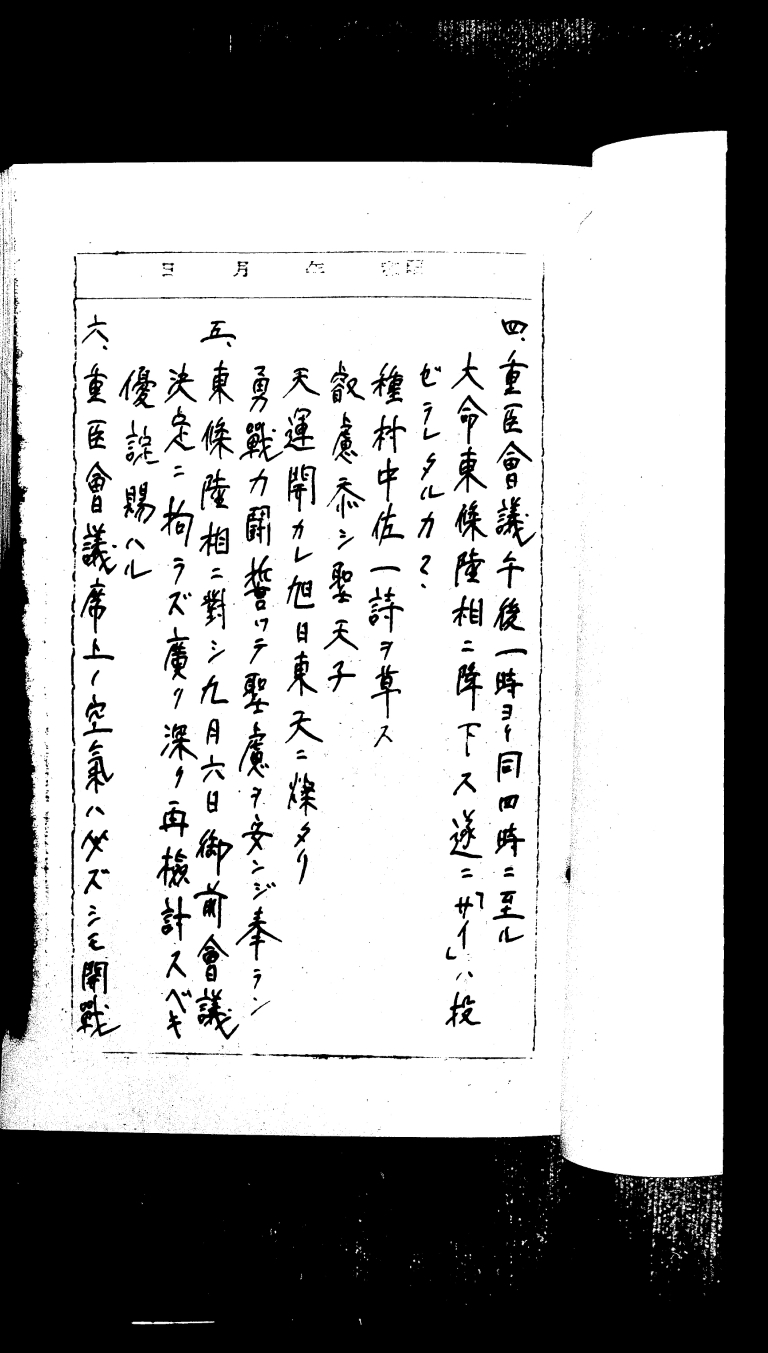 昭和 年 月 日
四、重臣會議午後一時ヨリ同四時ニ至ル
大命東條陸相ニ降下ス遂ニ「サイ」ハ投
ゼラレタルカ？、
種村中佐一詩ヲ草ス
叡慮忝シ聖天子
天運開カレ旭日東天ニ燦タリ
勇戰力鬪誓ッテ聖慮ヲ安ンジ奉ラン
五、東條陸相ニ對シ九月六日御前會議
決定ニ拘ラズ廣ク深ク再檢討スベキ
優諚賜ハル
六、重臣會議席上ノ空氣ハ必ズシモ開戰